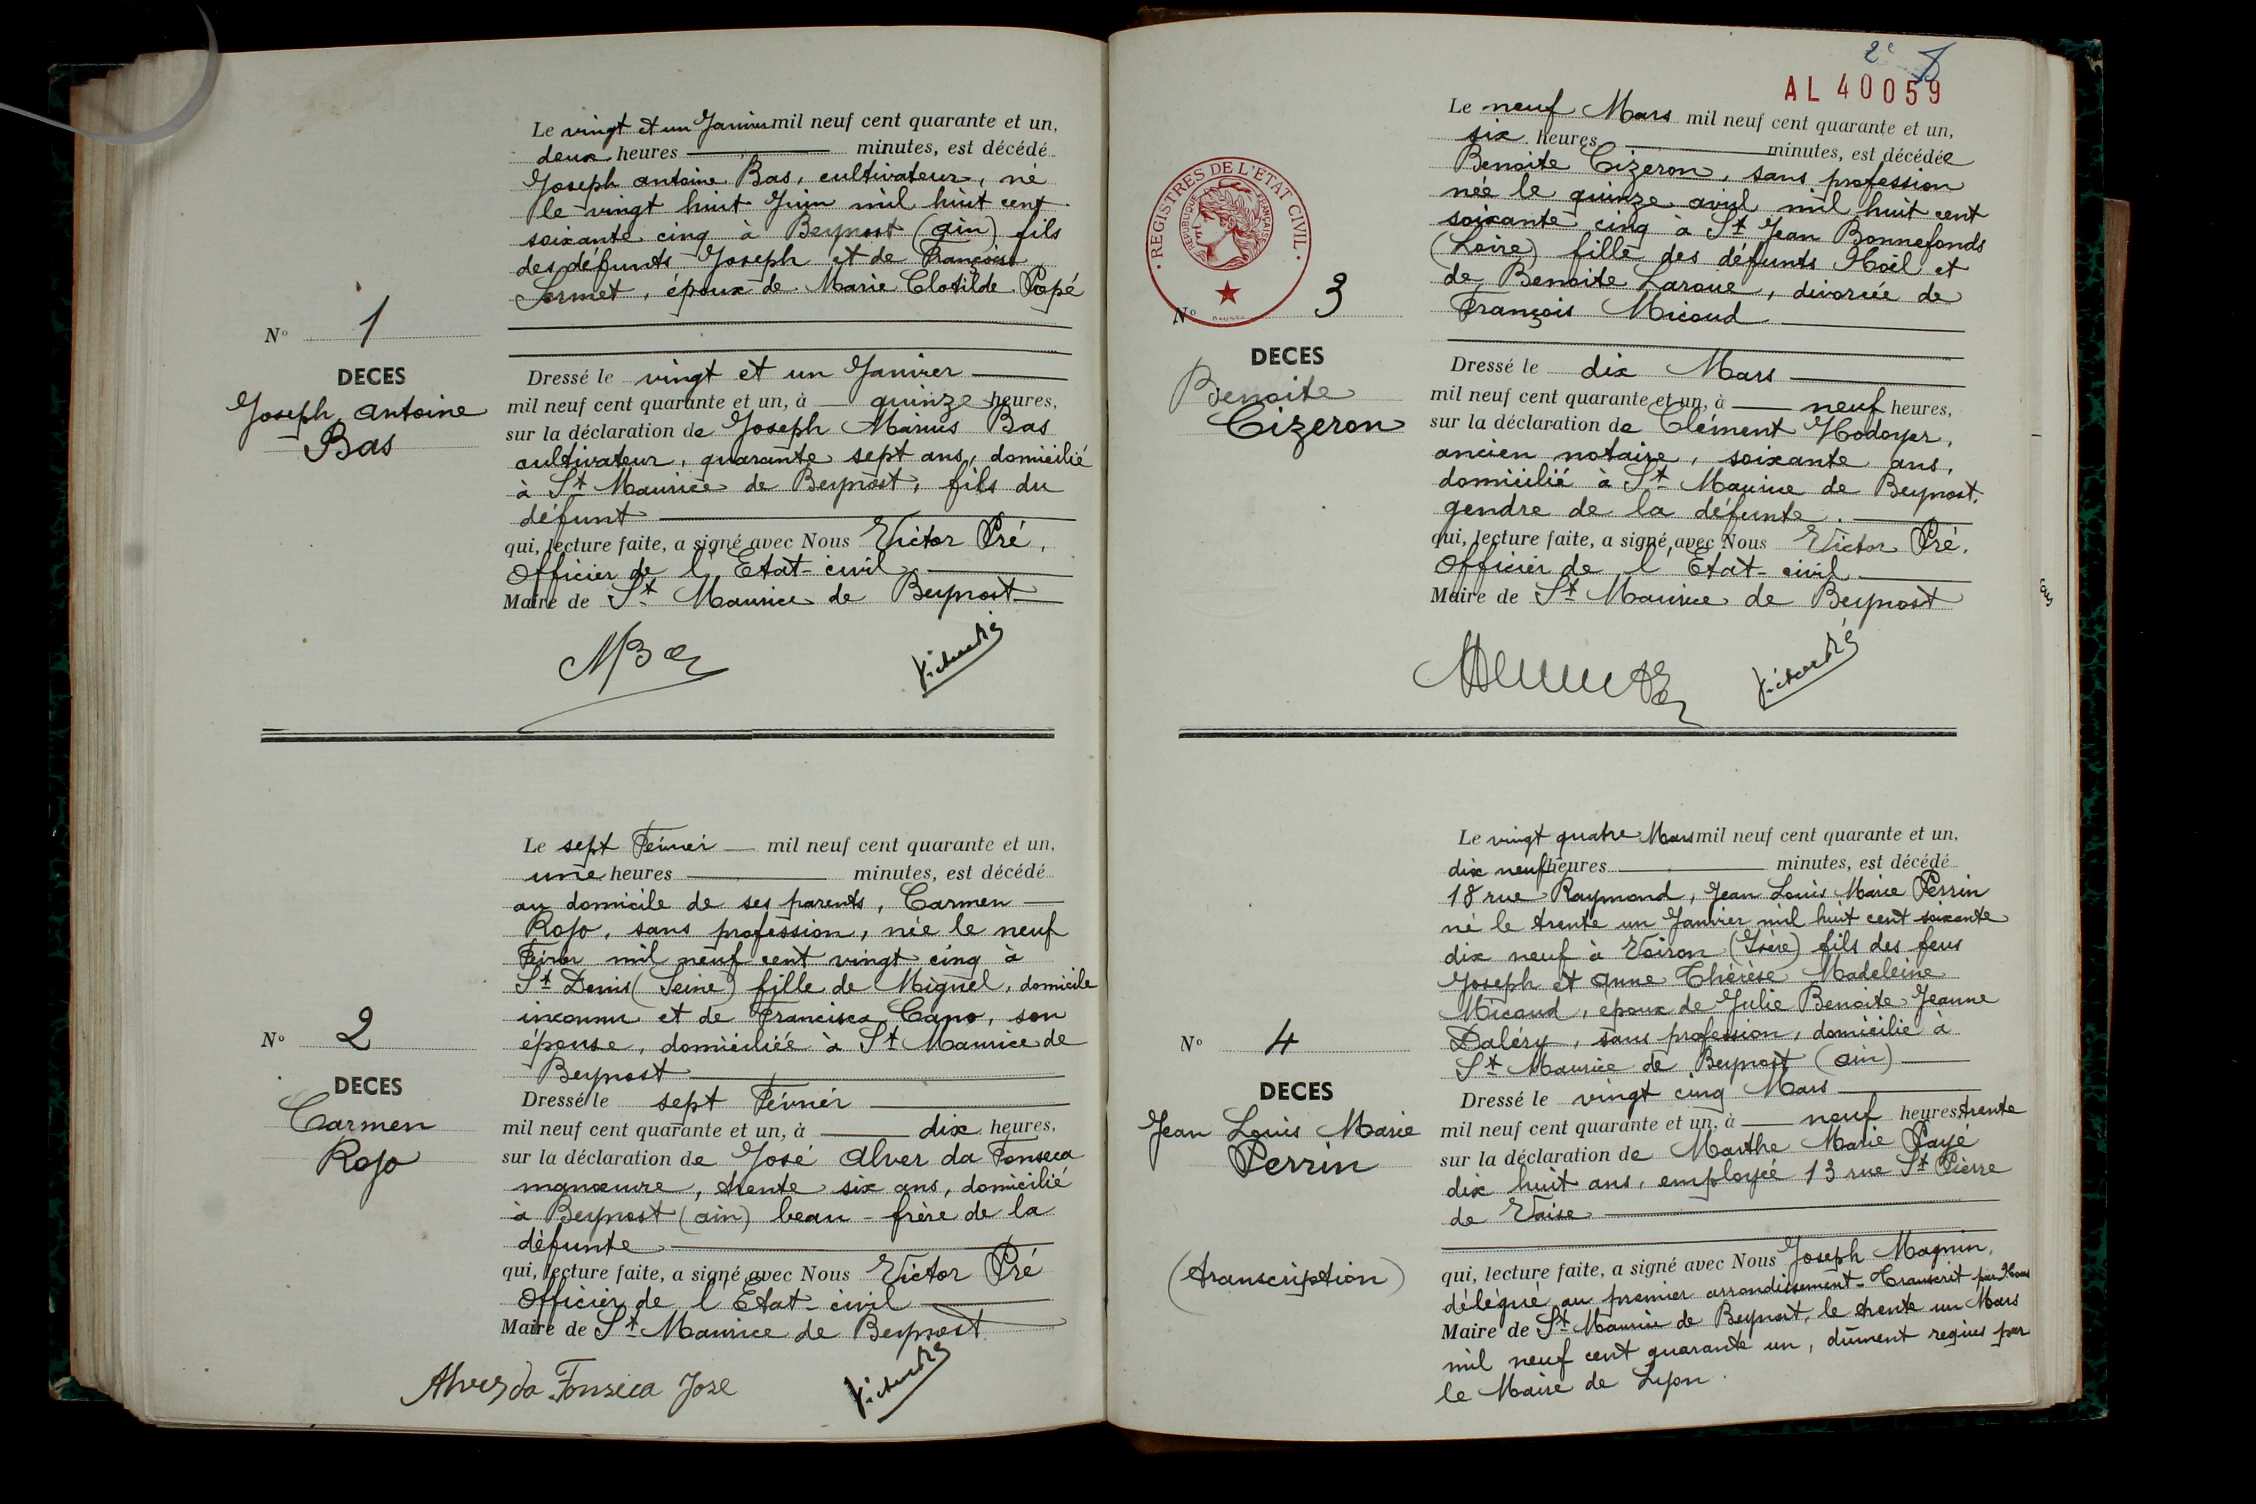 Le vingt et un Janvier mil neuf cent quarante et un,
deux heures minutes, est décédé
Joseph Antoine Bas, cultivateur, né
le vingt huit Juin mil huit cent
soixante cinq à Beynost (Ain) fils
des défunts Joseph et de Françoise
, époux de Marie Clotilde Popé
N° 1
DECES
Joseph Antoine
Bas
Dressé le vingt et un Janvier
mil neuf cent quarante et un, à quinze heures,
sur la déclaration de Joseph Marius Bas
cultivateur, quarante sept ans, domicilié
à St Maurice de Beynost, fils du
défunt
qui, lecture faite, a signé avec Nous Victor Pré,
Officier de l'Etat-civil
Maire de St Maurice de Beynost
MBas
Victor Pré
Le sept Février mil neuf cent quarante et un,
une heures minutes, est décédé
au domicile de ses parents, Carmen
Rojo, sans profession, née le neuf
Février mil neuf cent vingt cinq à
St Denis (Seine) fille de Miguel, domicile
inconnu et de Francisca Cano, son
épouse, domiciliée à St Maurice de
Beynost
N° 2
DECES
Carmen
Rojo
Dressé le sept Février
mil neuf cent quarante et un, à dix heures,
sur la déclaration de José Alver da Fonseca
manœuvre, trente six ans, domicilié
à Beynost (Ain) beau-frère de la
défunte
qui, lecture faite, a signé avec Nous Victor Pré
Officier de l'Etat-civil
Maire de St Maurice de Beynost
Alves da Fonseca Jose
Victor Pré
2e
AL 40059
Le neuf Mars mil neuf cent quarante et un,
six heures minutes, est décédée
Benoite Cizeron, sans profession
née le quinze avril mil huit cent
soixante cinq à St Jean Bonnefonds
(Loire) fille des défunts Noël et
de Benoite Laroue, divorcée de
François Micoud
REGISTRES DE L'ETAT CIVIL
REPUBLIQUE FRANÇAISE
N° 3
DECES
Benoite
Cizeron
Dressé le dix Mars
mil neuf cent quarante et un, à neuf heures,
sur la déclaration de Clément Hodoyer,
ancien notaire, soixante ans,
domicilié à St Maurice de Beynost,
gendre de la défunte.
qui, lecture faite, a signé avec Nous Victor Pré,
Officier de l'Etat-civil
Maire de St Maurice de Beynost
Victor Pré
Le vingt quatre Mars mil neuf cent quarante et un,
dix neuf heures minutes, est décédé
18 rue Raymond, Jean Louis Marie Perrin
né le trente un Janvier mil huit cent soixante
dix neuf à Voiron (Isère) fils des feus
Joseph et Anne Thérèse Madeleine
Micoud, époux de Julie Benoite Jeanne
Daléry, sans profession, domicilié à
St Maurice de Beynost (Ain)
N° 4
DECES
Jean Louis Marie
Perrin
(transcription)
Dressé le vingt cinq Mars
mil neuf cent quarante et un, à neuf heures trente
sur la déclaration de Marthe Marie Payé
dix huit ans, employée 13 rue St Pierre
de Vaise
qui, lecture faite, a signé avec Nous Joseph Magnin,
délégué au premier arrondissement - Transcrit par Nous
Maire de St Maurice de Beynost, le trente un Mars
mil neuf cent quarante un, dûment requis par
le Maire de Lyon.